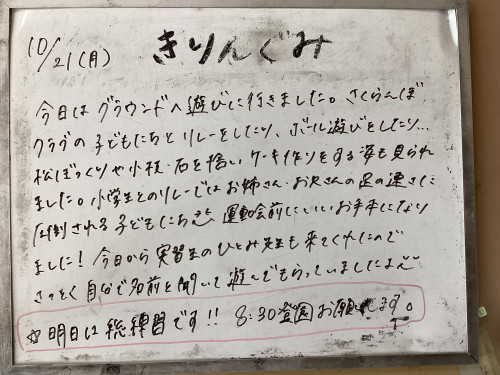 10/21(月) きりんぐみ
今日は グラウンドへ遊びに行きました。さくらんぼ
クラブの 子どもたちと リレーをしたり、ボール遊びをしたり…
松ぼっくりや小枝・石を拾い ケーキ作りをする姿も見られ
ました。小学生とのリレーではお姉さん・お兄さんの足の速さに
圧倒される子どもたち 運動会前にいいお手本になり
ました! 今日から実習生のひとみ先生も来てくれたので
さっそく自分で名前を聞いて遊んでもらっていましたよ
☆明日は総練習です!! 8:30登園お願いします。